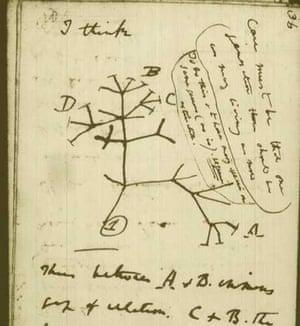 36
I think
Case must be that one
generation then should be
as many living as now
To do this & to have many species in
same genus (as is) requires
extinction.
B
C
D
A
1
Thus between A & B. immens
gap of relation. C & B. the